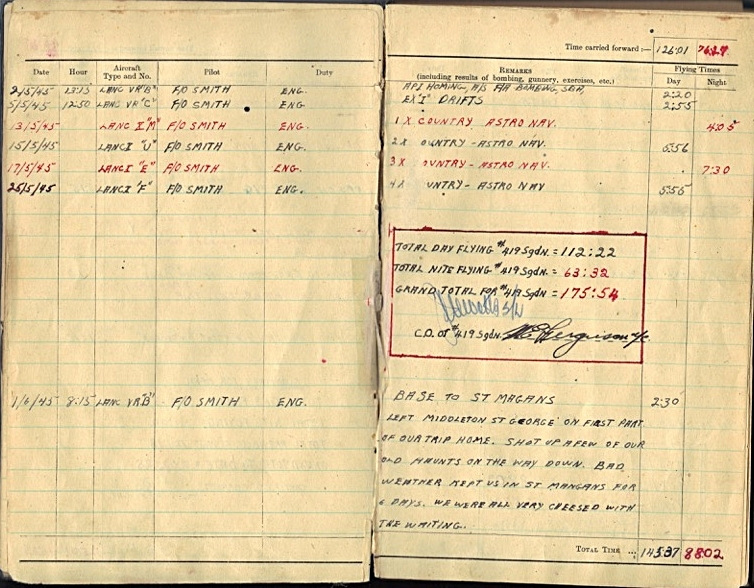 Time carried forward :— 126:01
Date Hour Aircraft Type and No. Pilot Duty REMARKS (including results of bombing, gunnery, exercises, etc.) Flying Times Day Night
2/5/45 13:15 LANC VR"B" F/O SMITH ENG. API HOMING, BOMBING, 2:20
5/5/45 12:50 LANC VR "C" F/O SMITH ENG. EX "I" DRIFTS 2:55
13/5/45 LANC X "M" F/O SMITH ENG. 1 X COUNTRY ASTRO NAV. 4:05
15/5/45 LANC X "U" F/O SMITH ENG. 2 X OUNTRY - ASTRO NAV. 5:56
17/5/45 LANC X "E" F/O SMITH ENG. 3 X OUNTRY - ASTRO NAV. 7:30
25/5/45 LANC X "F" F/O SMITH ENG. 4 X UNTRY - ASTRO NAV 5:55
TOTAL DAY FLYING #419 SqdN. = 112:22
TOTAL NITE FLYING #419 SqdN. = 63:32
GRAND TOTAL FOR #419 SqdN = 175:54
C.O. OF #419 SqdN.
1/6/45 8:15 LANC VR"B" F/O SMITH ENG. BASE TO ST MAGANS 2:30
LEFT MIDDLETON ST GEORGE ON FIRST PART
OF OUR TRIP HOME. SHOT UP A FEW OF OUR
OLD HAUNTS ON THE WAY DOWN. BAD
WEATHER KEPT US IN ST MANGANS FOR
6 DAYS. WE WERE ALL VERY CHEESED WITH
THE WAITING.
TOTAL TIME 145:37 88:02